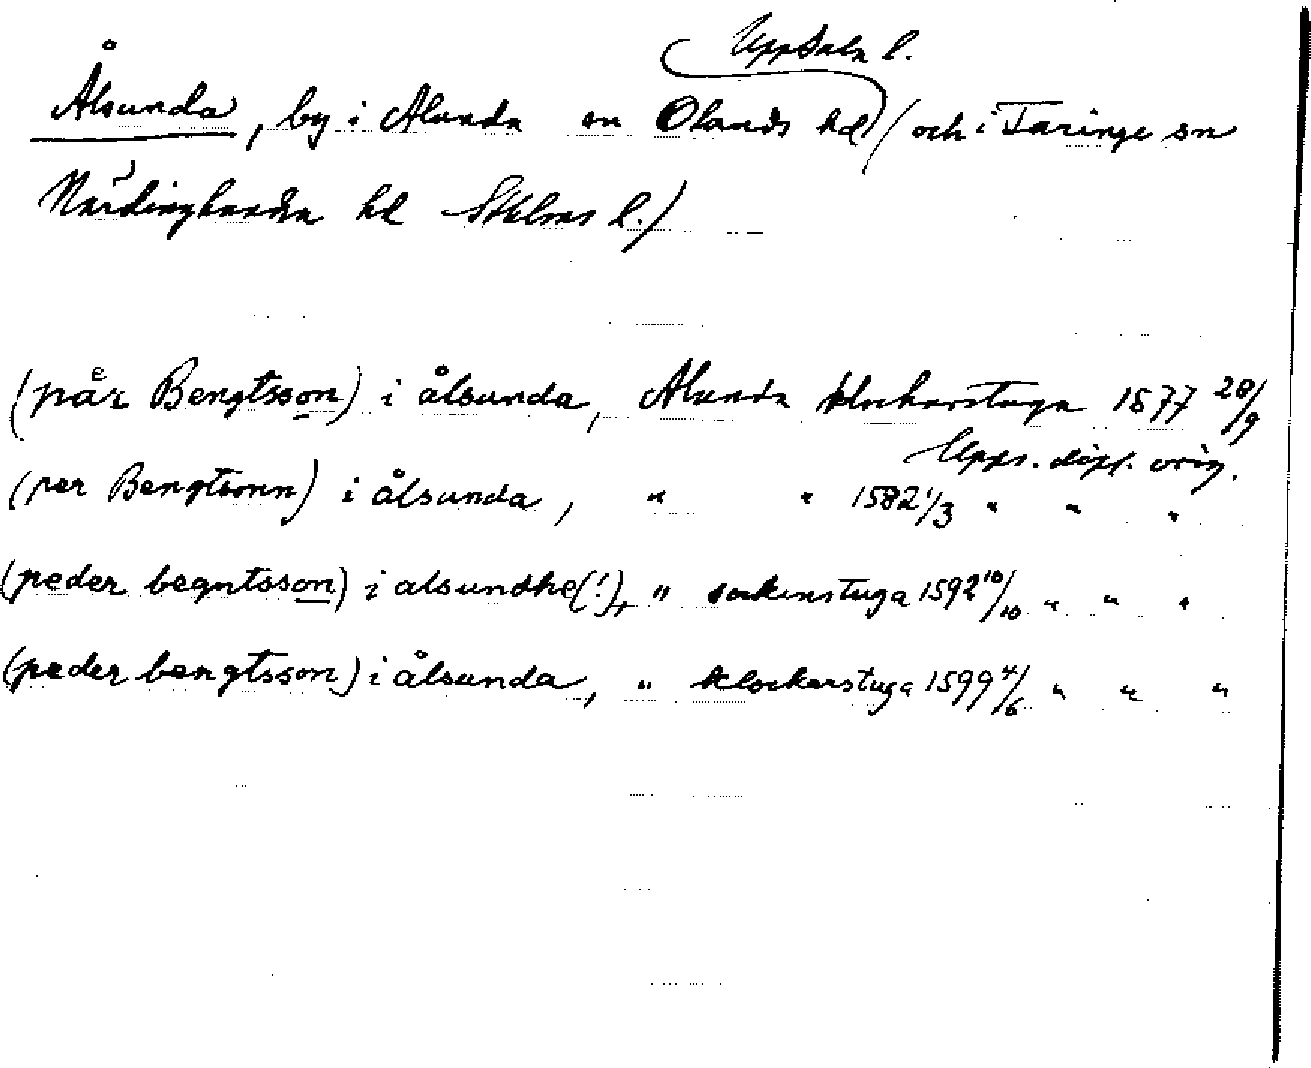 Uppsala l.
Ålsunda, by i Alunda sn Olands hd (och i Faringe sn
Närdinghundra hd Sthlms l.)
(pår Bengtsson) i ålsunda, Alunda klockarstuga 1577 28/9
Upps. dipl. orig.
(per Bengtsonn) i ålsunda, " " 1582 1/3 " " "
(peder begntsson) i alsundhe(!), " sockenstuga 1592 10/10 " " "
(peder bengtsson) i ålsunda, " klockerstuga 1599 4/6 " " "